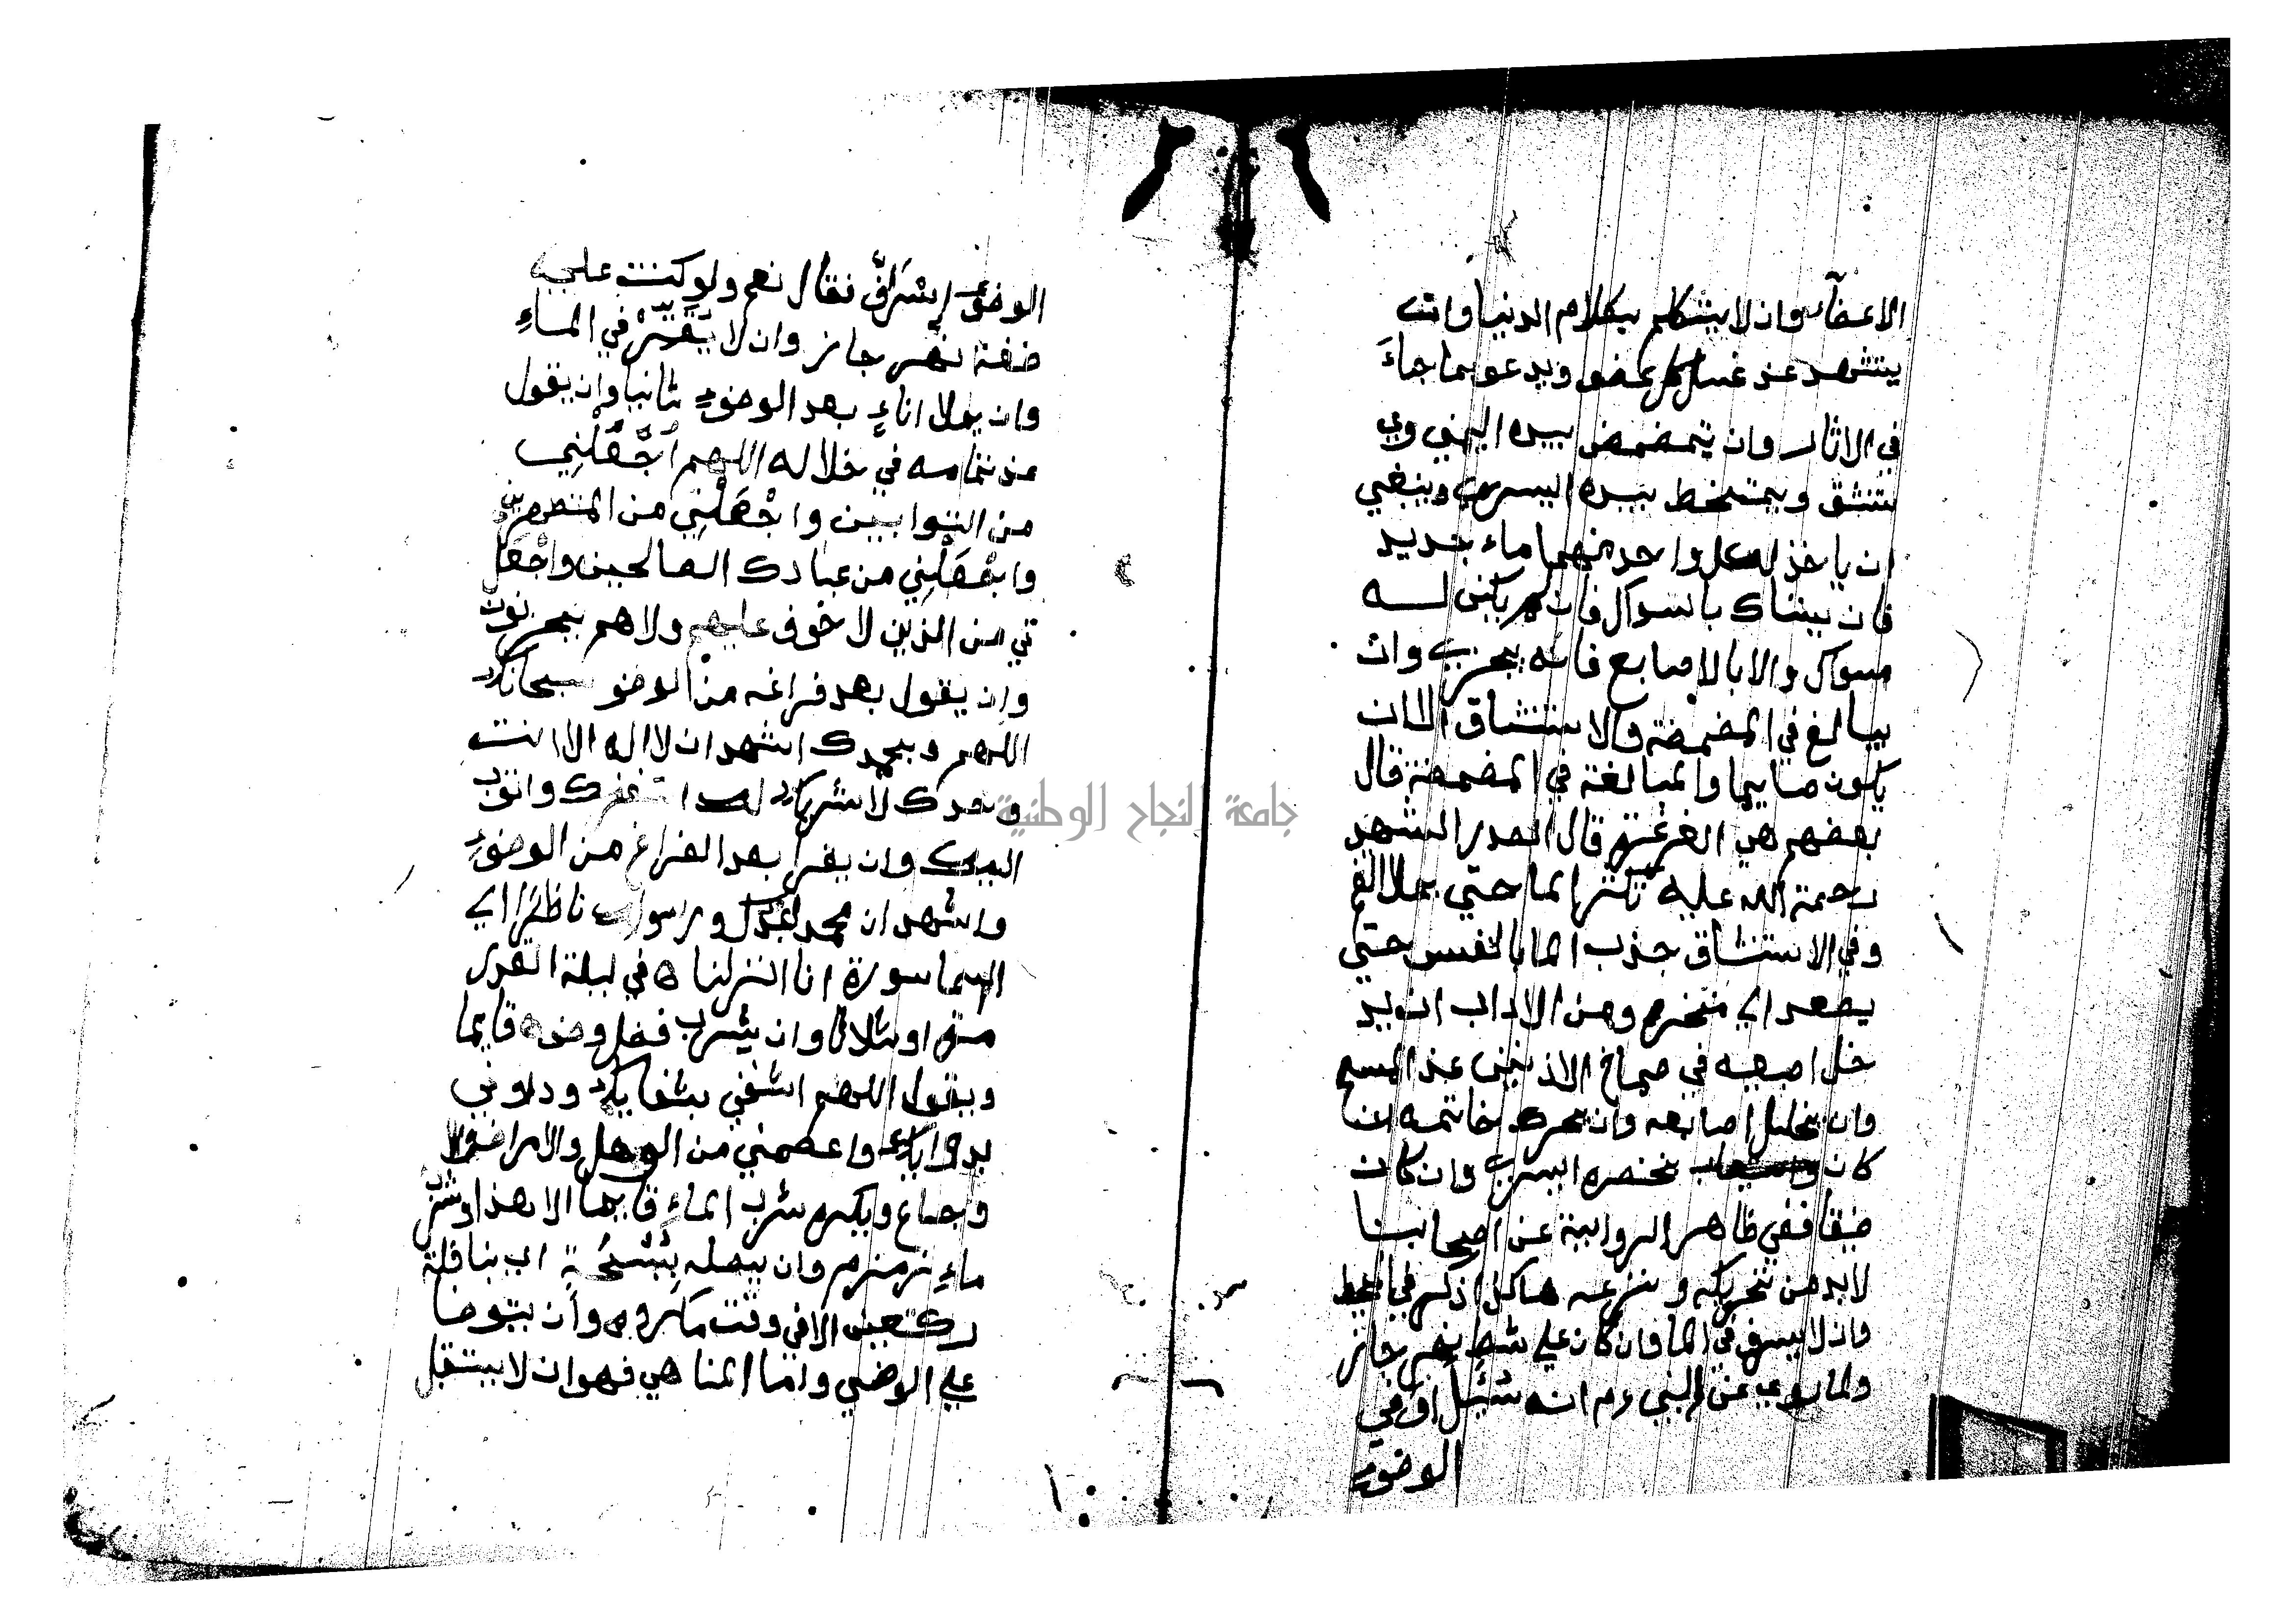 الاعضآء وان لا يتكلم بكلام الدنيا وان
يتشهد عند غسل كل عضو ويدعو بما جاءَ
في الاثار وان يتمضمض بيده اليمني وي
ستنشق ويمتخط بيده اليسري وينبغي
ان ياخذ لكل واحد منهما ماء جديد
فان يستاك باسواك فان لم يكن لـه
مسواك والا بالاصابع فانه يجزي وان
يبالغ في المضمضة والاستنشاق الا ان
يكون صايما والمبالغة في المضمضة قال
بعضهم هي الغرغرة قال الصدر الشهيد
رحمة الله عليه يكثر الما حتي يملا الفم
وفي الاستنشاق جذب الما بالنفس حتي
يصعد الي منخره ومن الاداب ان يد
خل اصبعيه في صماخ الاذنين عند المسح
وان يخلل اصابعه وان يحرك خاتمه ان
كان بخنصره اليسري وان كان
ضيقا ففي ظاهر الرواية عن اصحابنا
لابد من تحريكه ونزعه هاكذا ذكر في المحيط
وان لا يسرف في الما وان كان علي شط نهر جاز
ولما روي عن النبي عم انه سُئِل اَوَفي
الوضوءِ
الوضوءِ اِسْرَافٌ فقال نعم ولو كنت علي
ضفة نهر جاز وان لا يُقَتِّرْ في الماءِ
وان يملا اناءٍ بعد الوضوءِ ثانيا وان يقول
عند تمامه في خلاله اللهم اجْعَلْنِي
من التوابين واجْعَلْنِي من المتطهرين
واجْعَلْنِي من عبادك الصالحين واجْعَل
ني من الذين لا خوف عليهم ولا هم يحزنون
وان يقول بعد فراغه من الوضو سبحانك
اللهم وبحمدك اشهد ان لا اله الا انت
وحدك لا شريك لك استغفرك واتوب
اليك وان يقرا بعد الفراغ من الوضوءِ
واشهد ان محمد عبدك ورسولك ناظرا الي
السما سورة انا انزلناه في ليلة القدر
مرة او ثلاثا وان يشرب فضل وضوه قايما
ويقول اللهم اشفني بشفايك وداوني
بدوايك واعصمني من الوهل والامراض والا
وجاع ويكره شرب الماءِ قايما الا هذا وشرب
ماءِ زمزم وان يصله بِسُبْحَةٍ اي بنافلة
ركعتين الا في وقت مكروه وان يتوضا
علي الوضي واما المناهي فهو ان لا يستقبل
جامعة النجاح الوطنية